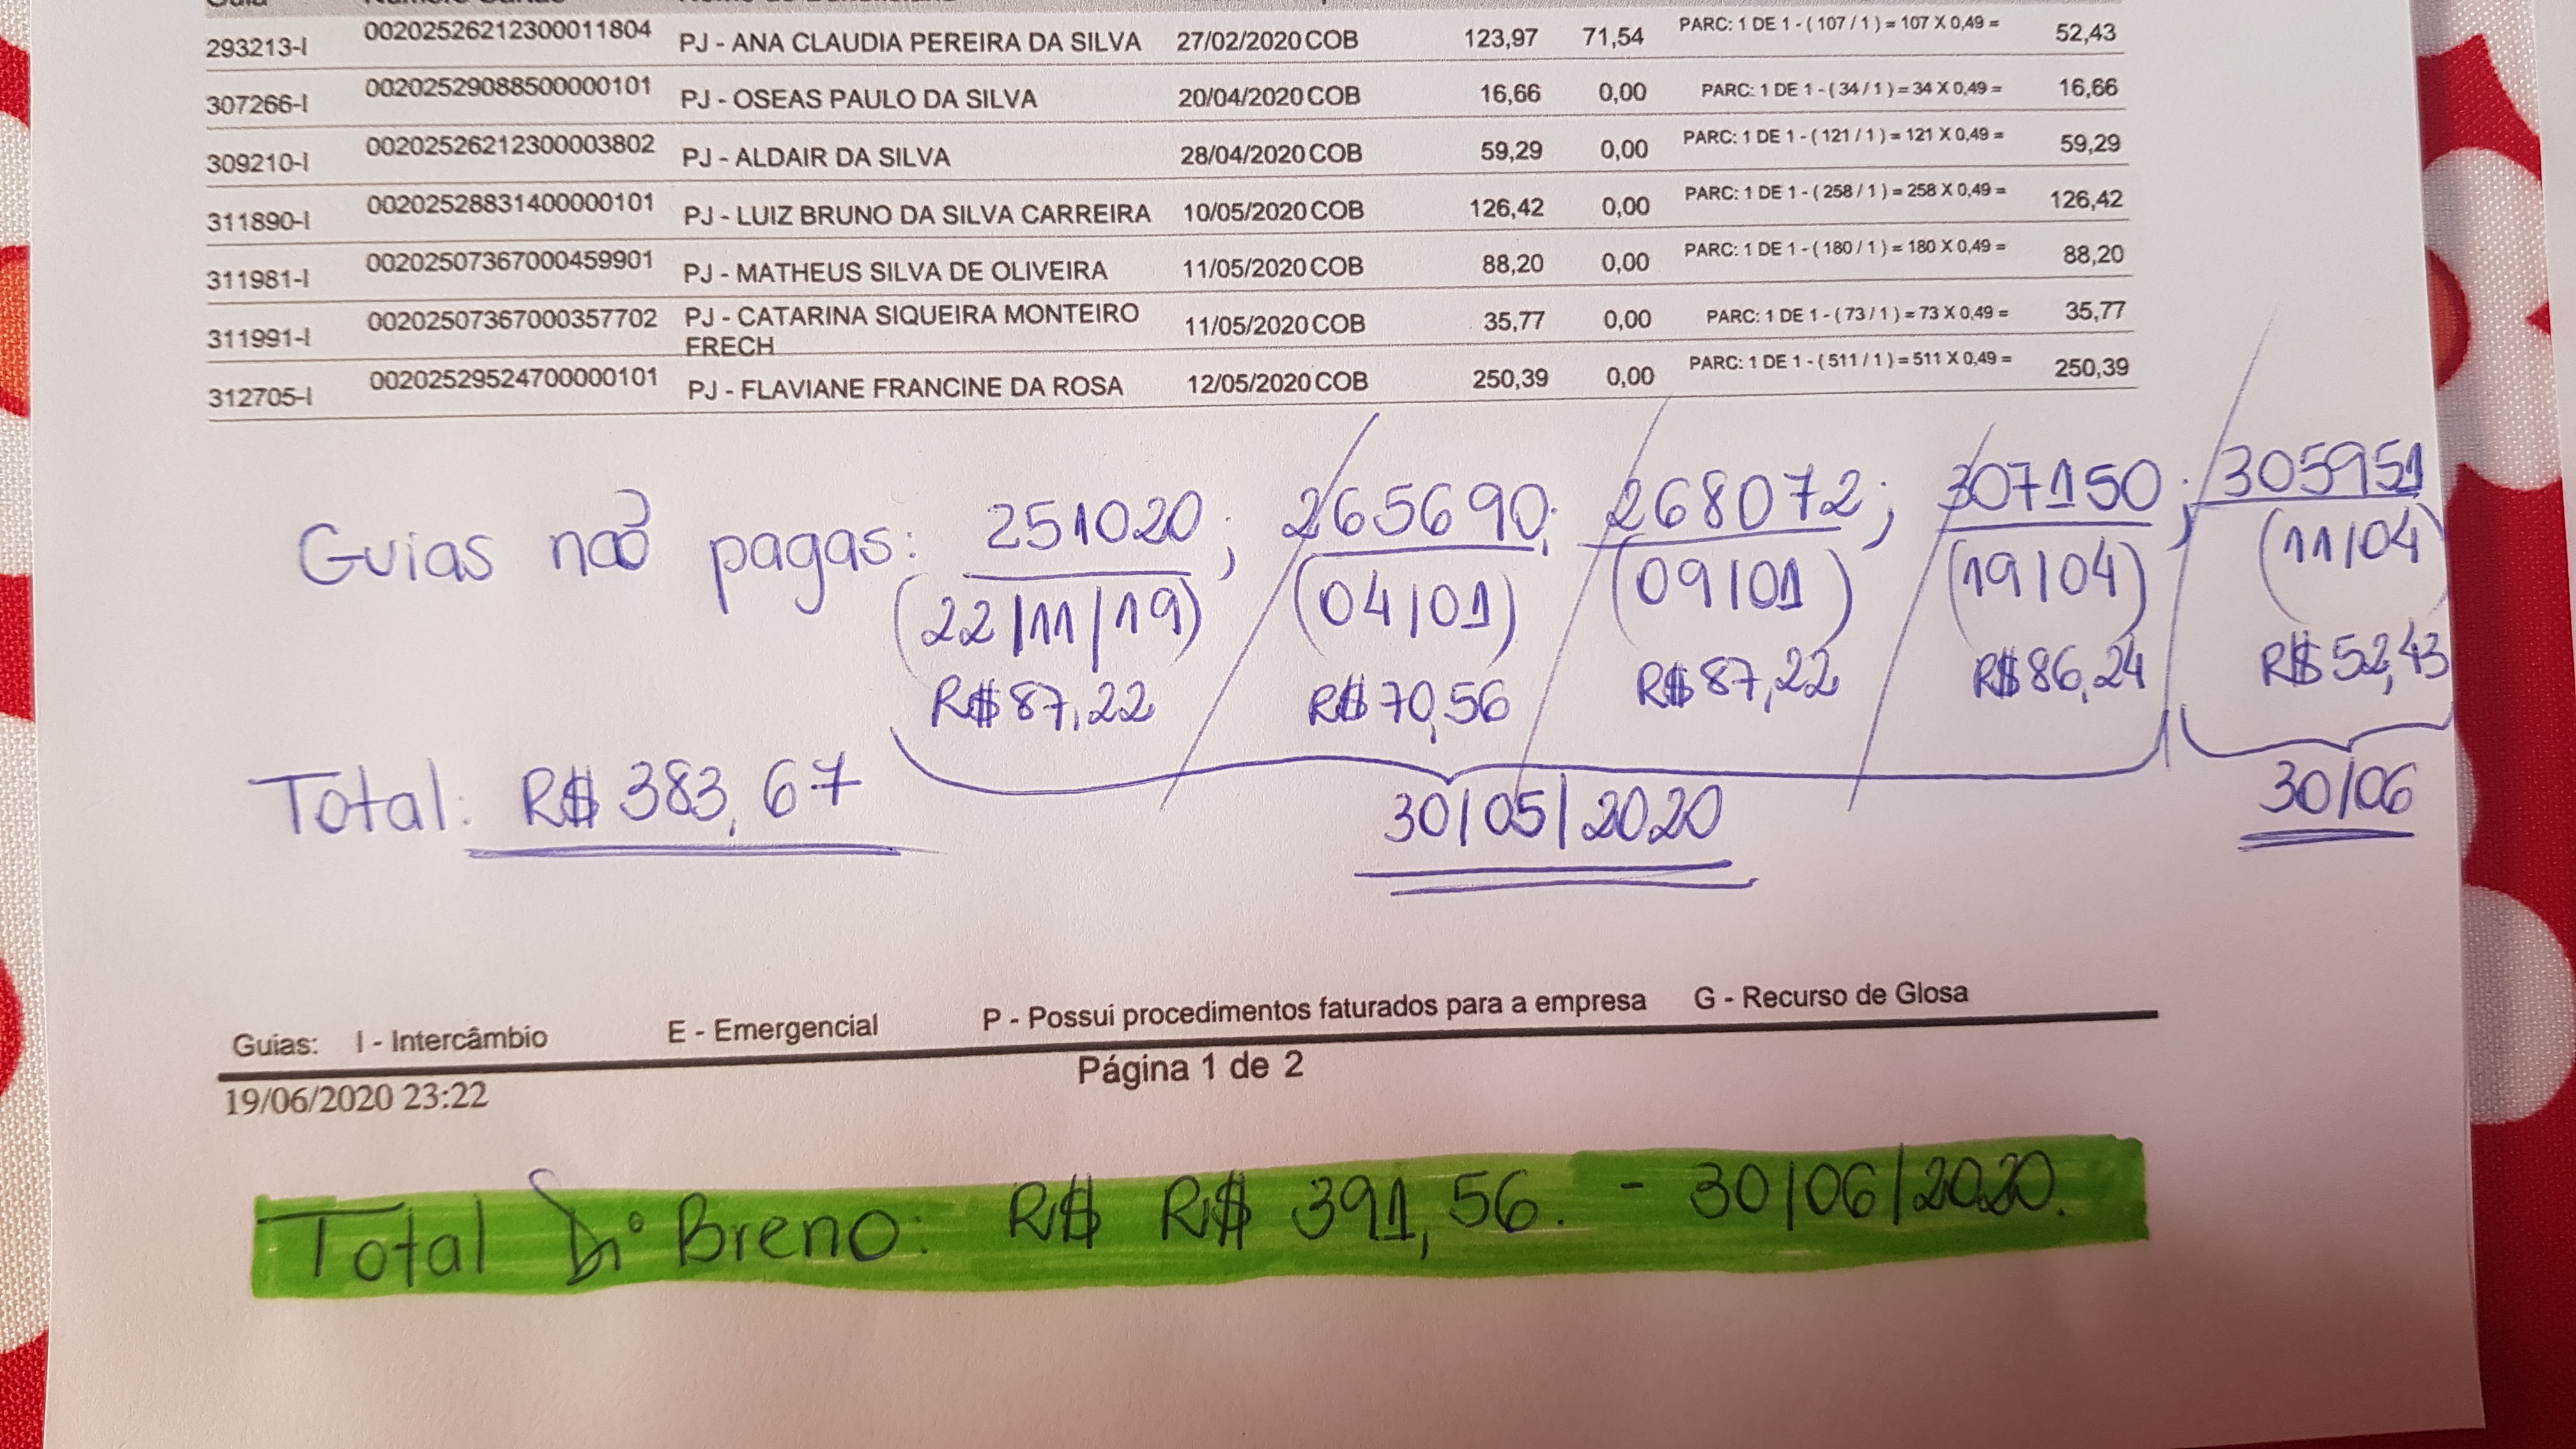 293213-I 00202526212300011804 PJ - ANA CLAUDIA PEREIRA DA SILVA 27/02/2020 COB 123,97 71,54 PARC: 1 DE 1 - ( 107 / 1 ) = 107 X 0,49 = 52,43
307266-I 00202529088500000101 PJ - OSEAS PAULO DA SILVA 20/04/2020 COB 16,66 0,00 PARC: 1 DE 1 - ( 34 / 1 ) = 34 X 0,49 = 16,66
309210-I 00202526212300003802 PJ - ALDAIR DA SILVA 28/04/2020 COB 59,29 0,00 PARC: 1 DE 1 - ( 121 / 1 ) = 121 X 0,49 = 59,29
311890-I 00202528831400000101 PJ - LUIZ BRUNO DA SILVA CARREIRA 10/05/2020 COB 126,42 0,00 PARC: 1 DE 1 - ( 258 / 1 ) = 258 X 0,49 = 126,42
311981-I 00202507367000459901 PJ - MATHEUS SILVA DE OLIVEIRA 11/05/2020 COB 88,20 0,00 PARC: 1 DE 1 - ( 180 / 1 ) = 180 X 0,49 = 88,20
311991-I 00202507367000357702 PJ - CATARINA SIQUEIRA MONTEIRO 11/05/2020 COB 35,77 0,00 PARC: 1 DE 1 - ( 73 / 1 ) = 73 X 0,49 = 35,77
FRECH
312705-I 00202529524700000101 PJ - FLAVIANE FRANCINE DA ROSA 12/05/2020 COB 250,39 0,00 PARC: 1 DE 1 - ( 511 / 1 ) = 511 X 0,49 = 250,39
Guias não pagas: 251020; 265690; 268072; 307150; 305951
(22/11/19) (04/01) (09/01) (19/04) (11/04)
R$ 87,22 R$ 70,56 R$ 87,22 R$ 86,24 R$ 52,43
Total: R$ 383,67 30/05/2020 30/06
Guias: I - Intercâmbio E - Emergencial P - Possui procedimentos faturados para a empresa G - Recurso de Glosa
Página 1 de 2
19/06/2020 23:22
Total Dr° Breno: R$ R$ 391,56. - 30/06/2020.